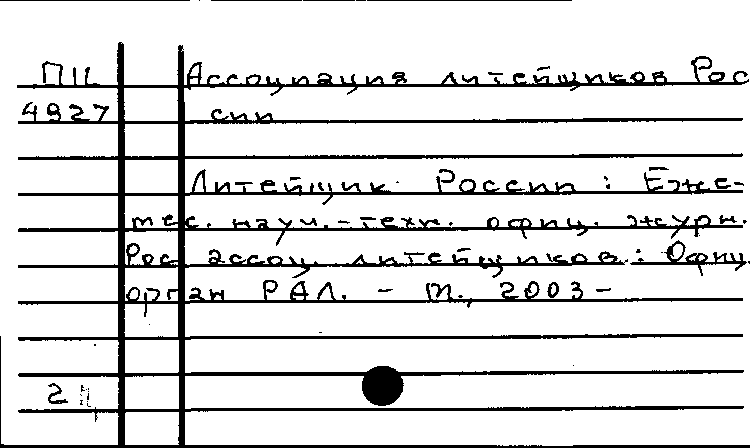 ПIL Ассоциация литейщиков Рос
4927 сии
Литейщик России : Еже-
мес. науч.-техн. офиц. журн.
Рос ассоц. литейщиков : Офиц.
орган РАЛ. - М., 2003-
2